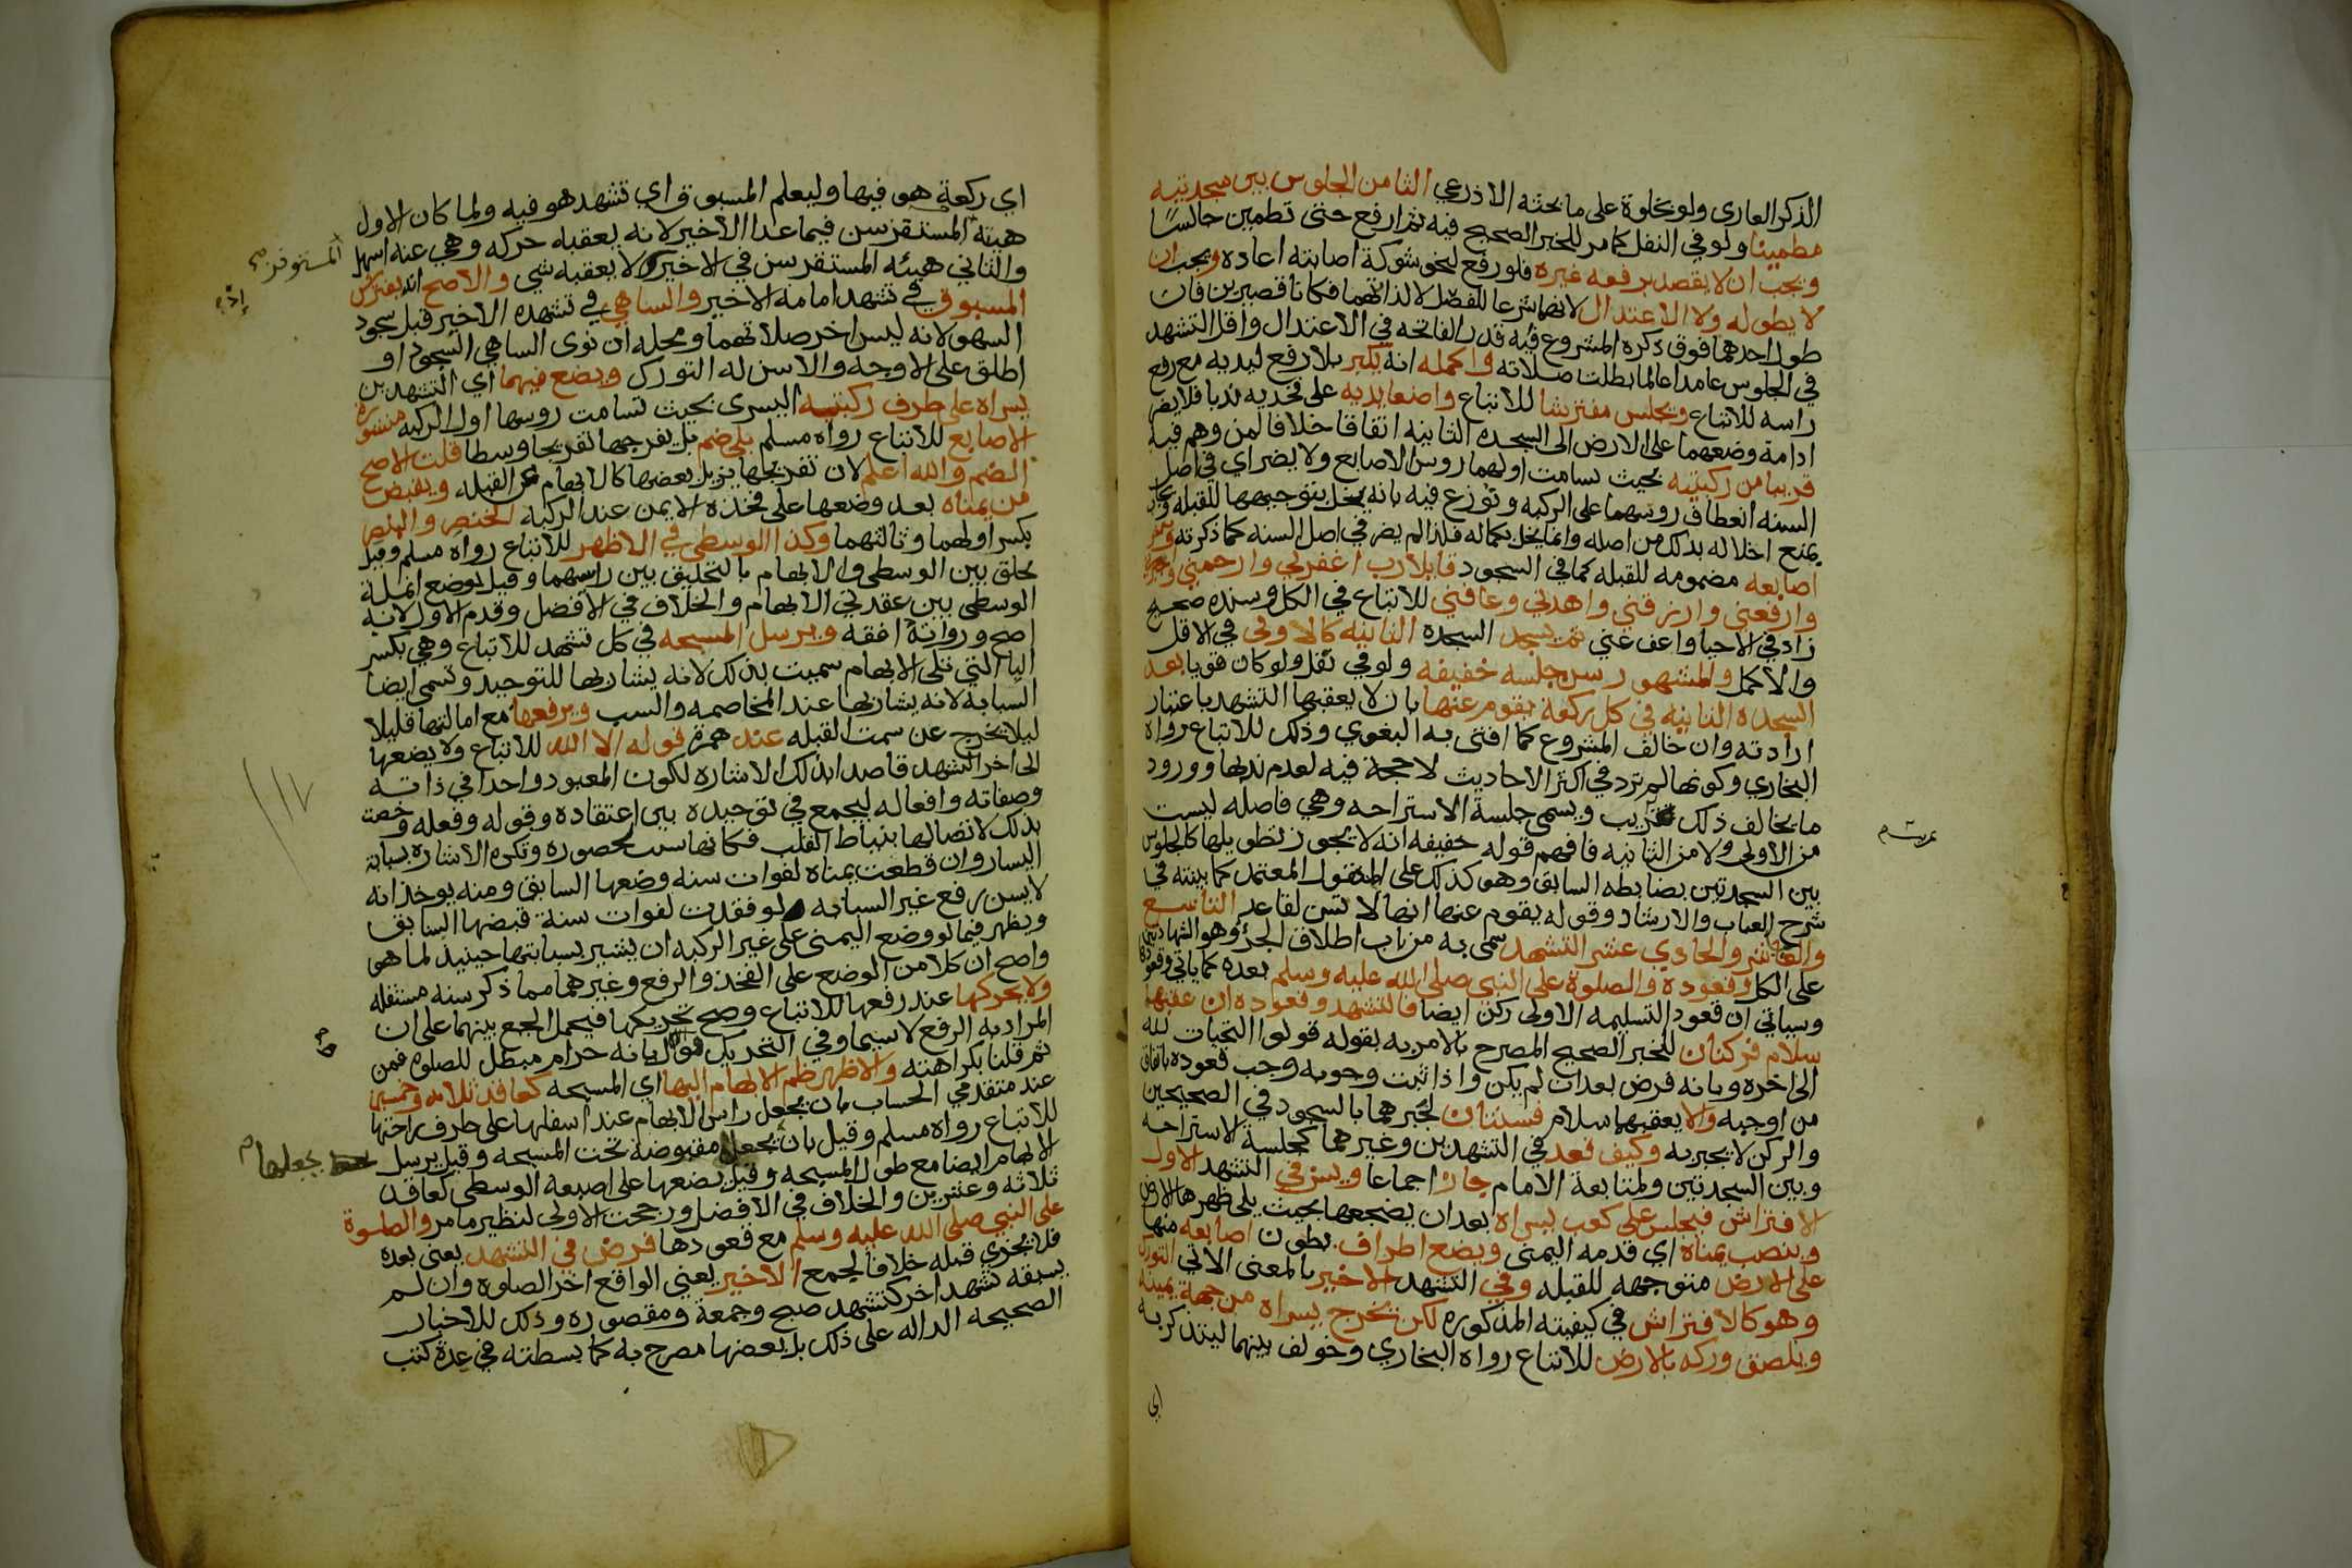 الذكر العاري ولو بخلوة على ما بحثه الاذرعي الثامن الجلوس بين سجدتيه
مطمينا ولو في النفل كما مر للخبر الصحيح فيه ثم ارفع حتى تطمين جالسًا
ويجب ان لا يقصد برفعه غيره فلو رفع لنحو شوكة اصابته اعاده ويجب ان
لا يطوله ولا الاعتدال لانهما شرعا للفصل لا لذاتهما فكانا قصيرين فان
طول احدهما فوق ذكره المشروع فيه قدر الفاتحه في الاعتدال واقل التشهد
في الجلوس عامدا عالما بطلت صلاته واكمله انه يكبر بلا رفع ليديه مع رفع
راسه للاتباع ويجلس مفترشا للاتباع واضعا يديه على فخديه ندبا فلا يضر
ادامة وضعهما على الارض الى السجده الثانيه اتفاقا خلافا لمن وهم فيه
قريبا من ركبتيه بحيث تسامت اولهما روس الاصابع ولا يضر اي في اصل
السنه انعطاف روسهما على الركبه ونوزع فيه بانه يخل بتوجيهها للقبله
يمنع اخلاله بذلك من اصله وانما يخل بكماله فلذا لم يضر في اصل السنه كما ذكرته
اصابعه مضمومه للقبله كما في السجود قايلا رب اغفرلي وارحمني
وارفعني وارزقني واهدني وعافني للاتباع في الكل وسنده صحيح
زاد في الاحيا واعف عني ثم يسجد السجده الثانيه كالاولى في الاقل
والاكمل والمشهور سن جلسه خفيفه ولو في نفل ولو كان قويا بعد
السجده الثانيه في كل ركعة يقوم عنها بان لا يعقبها التشهد باعتبار
ارادته وان خالف المشروع كما افتى به البغوي وذلك للاتباع رواه
البخاري وكونها لم ترد في اكثر الاحاديث لا حجة فيه لعدم ندبها وورود
ما يخالف ذلك غريب ويسمى جلسة الاستراحه وهي فاصله ليست
من الاولى ولا من الثانيه فافهم قوله خفيفه انه لا يجوز تطويلها كالجلوس
بين السجدتين بضابطه السابق وهو كذلك على المنقول المعتمد كما بينته في
شرح العباب والارشاد وقوله يقوم عنها انها لا تسن لقاعد التاسع
والعاشر والحادي عشر التشهد سمى به من باب اطلاق الجزؤ وهو الشهادتين
على الكل وقعوده والصلوة على النبي صلى الله عليه وسلم بعده كما ياتي وقعوده
وسياتي ان قعود التسليمه الاولى ركن ايضا فالتشهد وقعوده ان عقبهما
سلام فركنان للخبر الصحيح المصرح بالامر به بقوله قولوا التحيات لله
الى اخره وبانه فرض بعد ان لم يكن واذا ثبت وجوبه وجب قعوده باتفاق
من اوجبه والا يعقبهما سلام فسنتان لجبرهما بالسجود في الصحيحين
والركن لا يجبر به وكيف قعد في التشهدين وغيرهما كجلسة الاستراحه
وبين السجدتين ولمتابعة الامام جاز اجماعا ويسن في التشهد الاول
الافتراش فيجلس على كعب يسراه بعد ان يضجعها بحيث يلي ظهرها الارض
وينصب يمناه اي قدمه اليمنى ويضع اطراف بطون اصابعه منها
على الارض متوجهه للقبله وفي التشهد الاخير بالمعنى الاتي التورك
وهو كالافتراش في كيفيته المذكوره لكن يخرج يسراه من جهة يمينه
ويلصق وركه بالارض للاتباع رواه البخاري وخولف بينهما ليتذكر به
اي
اي ركعة هو فيها وليعلم المسبوق اي تشهد هو فيه ولما كان الاول
هيئة المستقزسن فيما عدا الاخير لانه يعقبه حركه وهي عنه اسهل
المستوفز
والثاني هيئه المستقر سن في الاخير لا يعقبه شي والاصح انه يفترش
المسبوق في تشهد امامه الاخير والساهي في تشهده الاخير قبل سجود
السهو لانه ليس اخر صلاتهما ومحله ان نوى الساهي السجود او
اطلق على الاوجه والا سن له التورك ويضع فيهما اي التشهدين
يسراه على طرف ركبته اليسرى بحيث تسامت روسها اول الركبه منشورة
الاصابع للاتباع رواه مسلم بلى ضم بل يفرجها تفريجا وسطا قلت الاصح
الضم والله اعلم لان تفريجها يزيل بعضها كالابهام عن القبله ويقبض
من يمناه بعد وضعها على فخذه الايمن عند الركبه الخنصر والبنصر
بكسر اولهما وثالثهما وكذا الوسطى في الاظهر للاتباع رواه مسلم وقيل
يحلق بين الوسطى والابهام بالتحليق بين راسيهما وقيل بوضع انملة
الوسطى بين عقدتي الابهام والخلاف في الافضل وقدم الاول لانه
اصح ورواته افقه ويرسل المسبحه في كل تشهد للاتباع وهي بكسر
البا التي تلى الابهام سميت بذلك لانه يشار بها للتوحيد وتسمى ايضا
السبابه لانه يشار بها عند المخاصمه والسب ويرفعها مع امالتها قليلا
ليلا تخرج عن سمت القبله عند همزة قوله الا الله للاتباع ولا يضعها
الى اخر التشهد قاصدا بذلك الاشاره لكون المعبود واحدا في ذاته
وصفاته وافعاله ليجمع في توحيده بين اعتقاده وقوله وفعله وخصت
بذلك لاتصالها بنياط القلب فكانها سبب لحضوره وتكره الاشاره بسبابة
اليسار وان قطعت يمناه لفوات سنه وضعها السابق ومنه يوخذ انه
لا يسن رفع غير السبابه لو فقدت لفوات سنة قبضها السابق
ويظهر فيما لو وضع اليمنى على غير الركبه ان يشير بسبابتها حينيذ لما هو
واضح ان كلا من الوضع على الفخذ والرفع وغيرهما مما ذكر سنه مستقله
ولا يحركها عند رفعها للاتباع وصح تحريكها فيحمل الجمع بينهما على ان
المراد به الرفع لا سيما وفي التحريك قول بانه حرام مبطل للصلوه فمن
ثم قلنا بكراهته والاظهر ضم الابهام اليها اي المسبحه كعاقد ثلاثه وخمسين
عند متقدمي الحساب بان يجعل راس الابهام عند اسفلها على طرف راحتها
للاتباع رواه مسلم وقيل بان يجعل مقبوضة تحت المسبحه وقيل يرسل
يجعلها
الابهام ايضا مع طول المسبحه وقيل يضعها على اصبعه الوسطى كعاقد
ثلاثه وعشرين والخلاف في الافضل ورجحت الاولى لنظير ما مر والصلوة
على النبي صلى الله عليه وسلم مع قعودها فرض في التشهد يعنى بعده
فلا يجزي قبله خلافا لجمع الاخير يعني الواقع اخر الصلوه وان لم
يسبقه تشهد اخر كتشهد صبح وجمعة ومقصوره وذلك للاخبار
الصحيحه الداله على ذلك بل بعضها مصرح به كما بسطته في عدة كتب